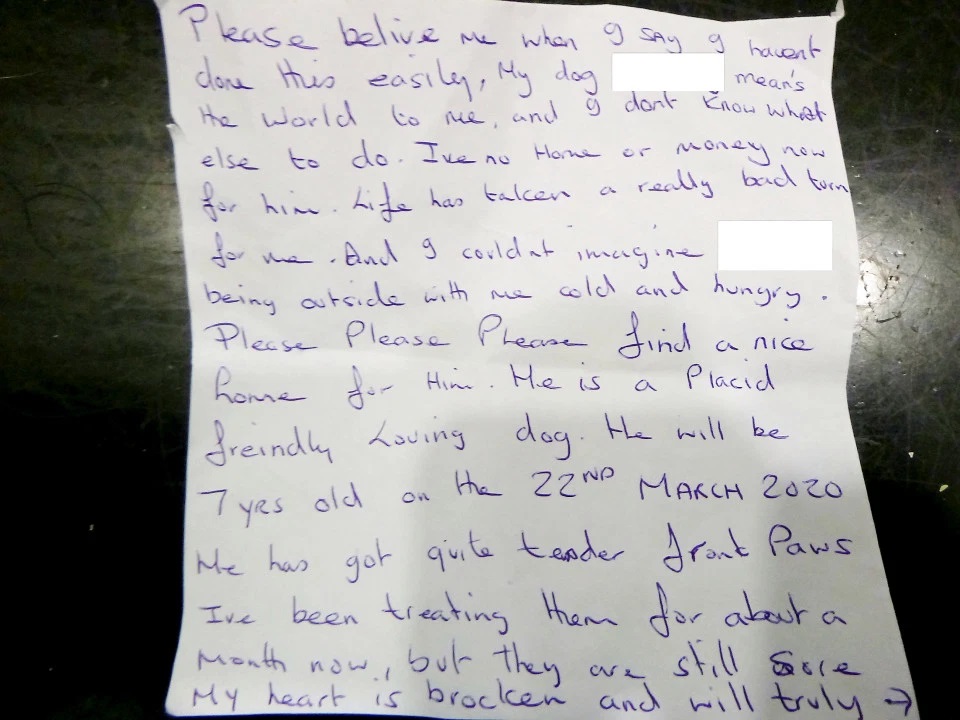 Please belive me when I SAY I havent
done this easily, My dog mean's
the World to me, and I dont know what
else to do. Ive no Home or money now
for him. Life has taken a really bad turn
for me. And I couldnt imagine
being outside with me cold and hungry.
Please Please Please find a nice
home for Him. He is a Placid
freindly Loving dog. He will be
7 yrs old on the 22ND MARCH 2020
He has got quite tender front Paws
Ive been treating them for about a
Month now, but they are still Sore
My heart is brocken and will truly →